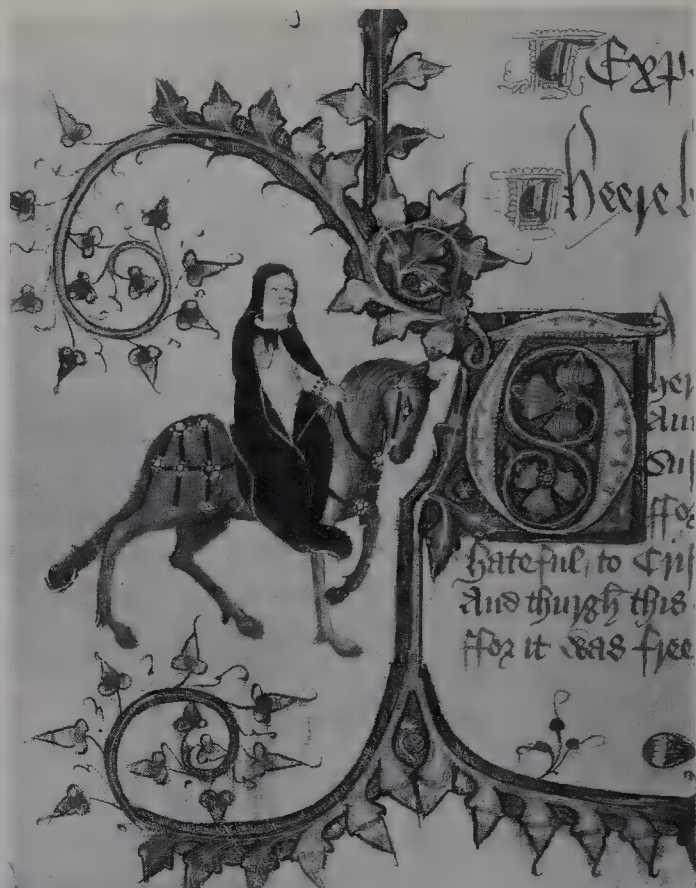 ¶ Exp
¶ Heere b
Ther
Am
Sus
ffor
hateful, to Cris
And thurgh this
ffor it was free